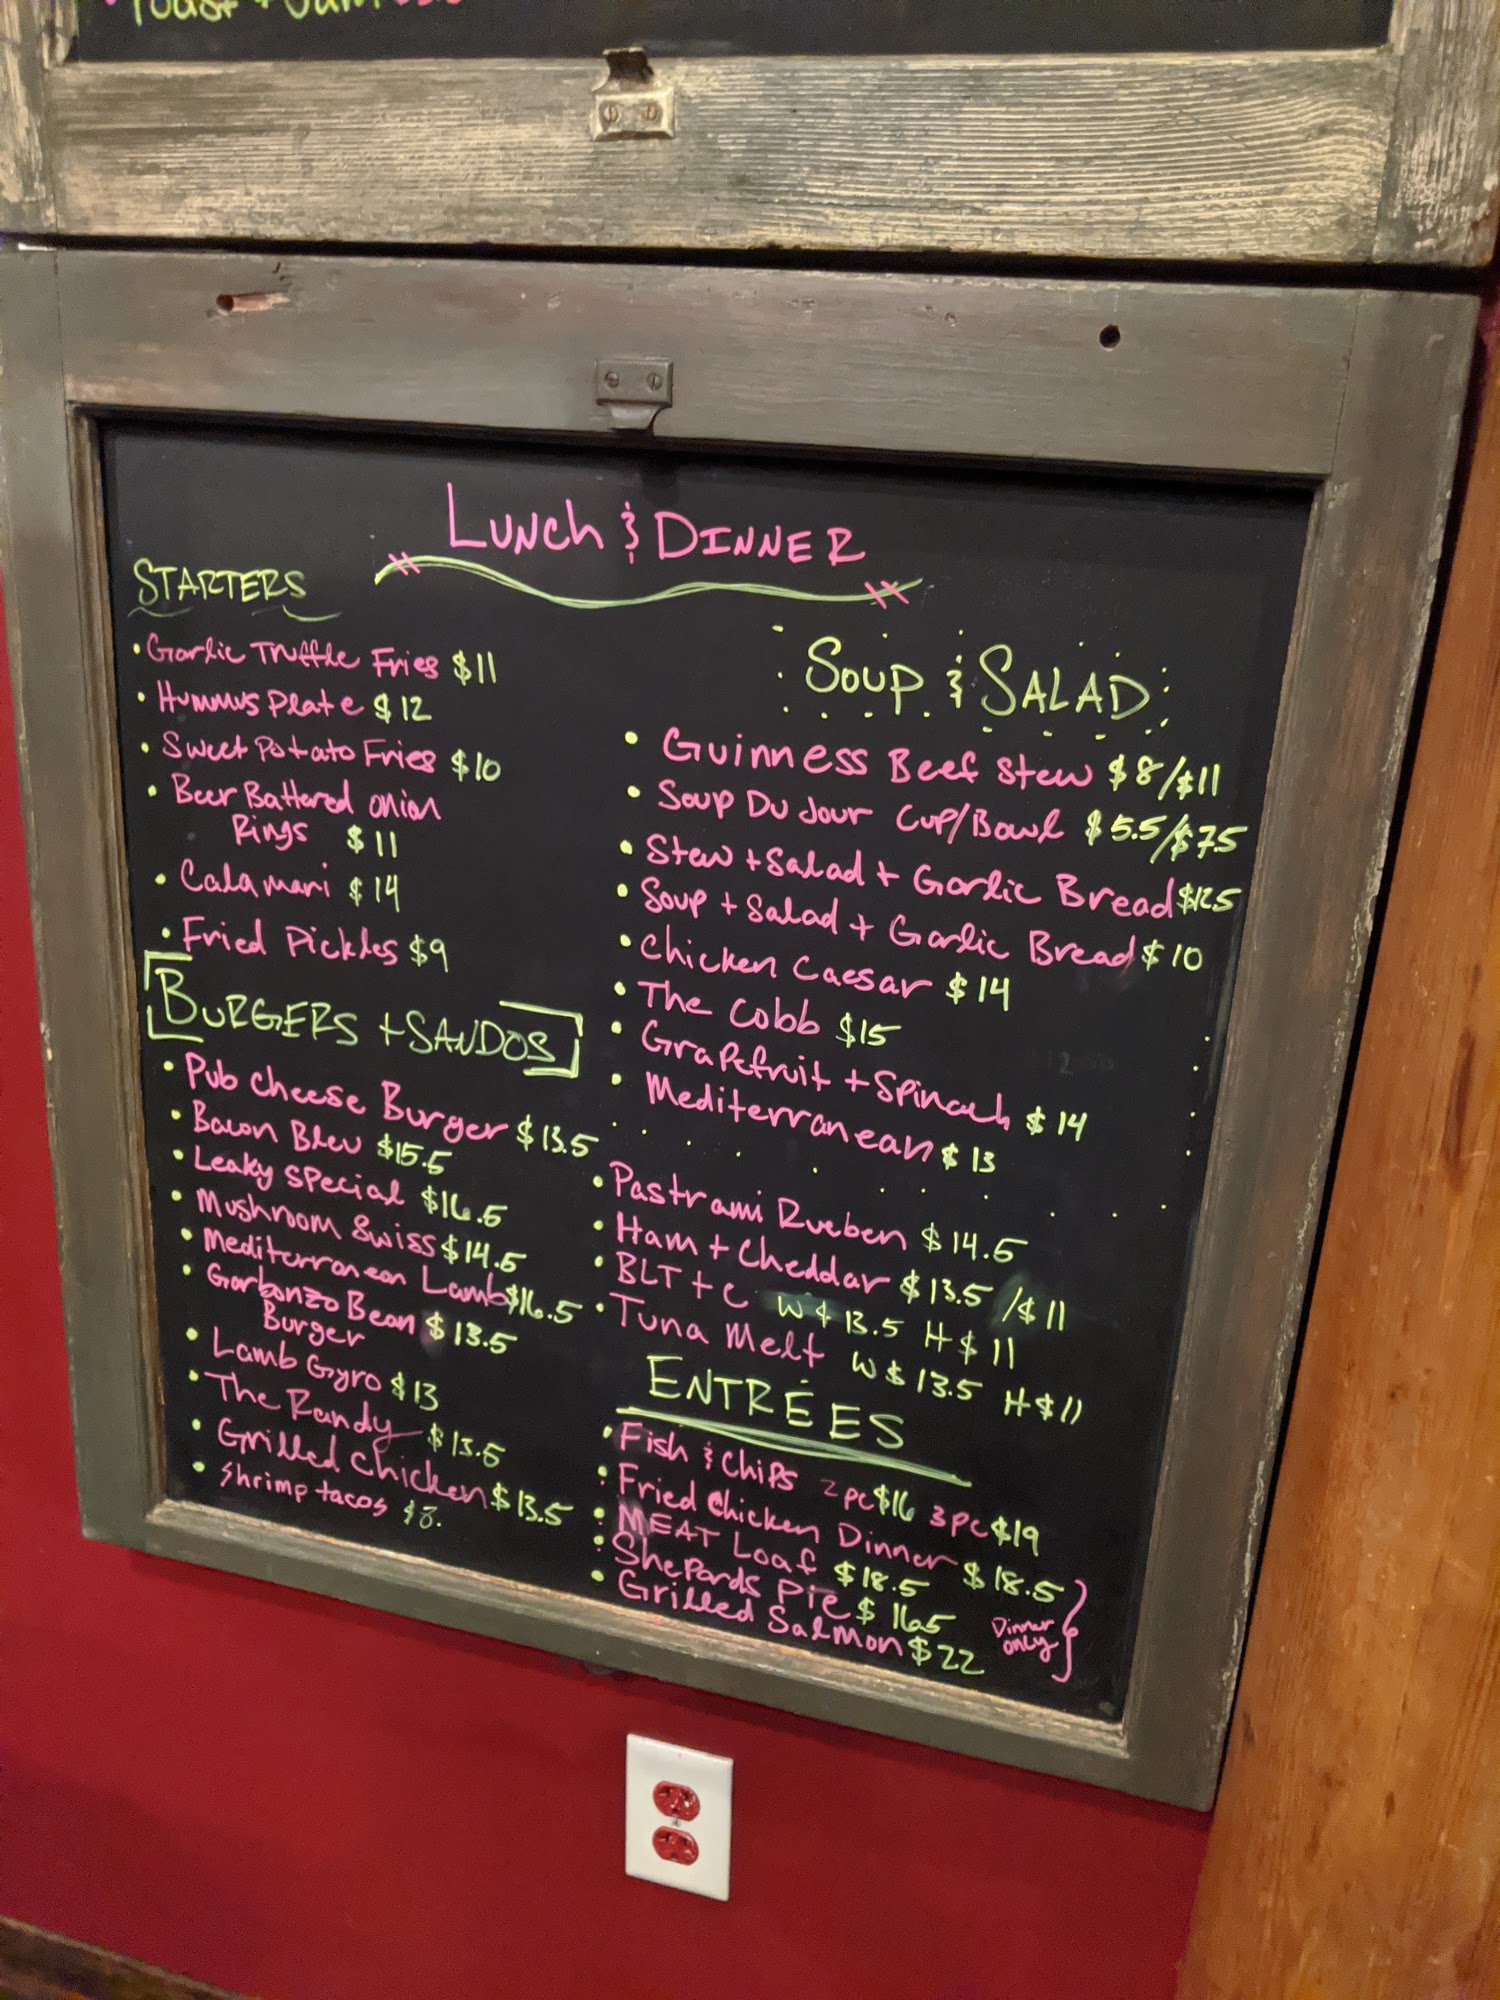 Toast + Jam
Lunch & Dinner
STARTERS
• Garlic Truffle Fries $11
• Hummus Plate $12
• Sweet Potato Fries $10
• Beer Battered Onion
Rings $11
• Calamari $14
• Fried Pickles $9
BURGERS + SANDOS
• Pub Cheese Burger $13.5
• Bacon Bleu $15.5
• Leaky Special $16.5
• Mushroom Swiss $14.5
• Mediterranean Lamb $16.5
• Garbonzo Bean $13.5
Burger
• Lamb Gyro $13
• The Randy $13.5
• Grilled Chicken $13.5
• Shrimp tacos $8.
SOUP & SALAD
• Guinness Beef Stew $8/$11
• Soup Du Jour Cup/Bowl $5.5/$7.5
• Stew + Salad + Garlic Bread $12.5
• Soup + Salad + Garlic Bread $10
• Chicken Caesar $14
• The Cobb $15
• Grapefruit + Spinach $14
• Mediterranean $13
• Pastrami Rueben $14.5
• Ham + Cheddar $13.5 /$11
• BLT + C W $13.5 H $11
• Tuna Melt W $13.5 H $11
ENTRÉES
• Fish & Chips 2pc $16 3pc $19
• Fried Chicken Dinner $18.5
• MEAT Loaf $18.5
• Shepards Pie $16.5
• Grilled Salmon $22
Dinner
only